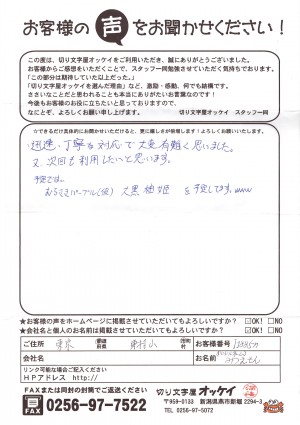 お客様の声をお聞かせください!
このたびは、切り文字屋オッケイをご利用いただき、誠にありがとうございました。
お客様からご感想をいただくことで、スタッフ一同勉強させていただく気持ちでおります。
「この部分は期待していた以上だった。」
「切り文字屋オッケイを選んだ理由」など、激励・感動、何でも結構です。
ささいなことだと思われることも本当にありがたいお言葉なのです!
今後もお客様のお役に立ちたいと思っておりますので、
なにとぞ、よろしくお願い申し上げます。
切り文字屋オッケイ スタッフ一同
☆できるだけ具体的にお聞かせいただけると、更に嬉しさが倍増します!よろしくお願いいたします。
迅速・丁寧な対応で大変有難く思いました。
又、次回も利用したいと思います。
予定では、
★お客様の声をホームページに掲載させていただいてもよろしいですか? ☑OK! □NO
★会社名と個人のお名前は掲載させていただいてもよろしいですか? ☑OK! □NO
ご住所 東京 都道府県 東村山 市町村 お客様番号
会社名 お名前
リンク可能な場合ご記入ください
HPアドレス http://
FAXまたは同封の封筒でご返送ください
FAX 0256-97-7522
切り文字屋オッケイ
〒959-0133 新潟県燕市新堀 2294-3
TEL 0256-97-5072